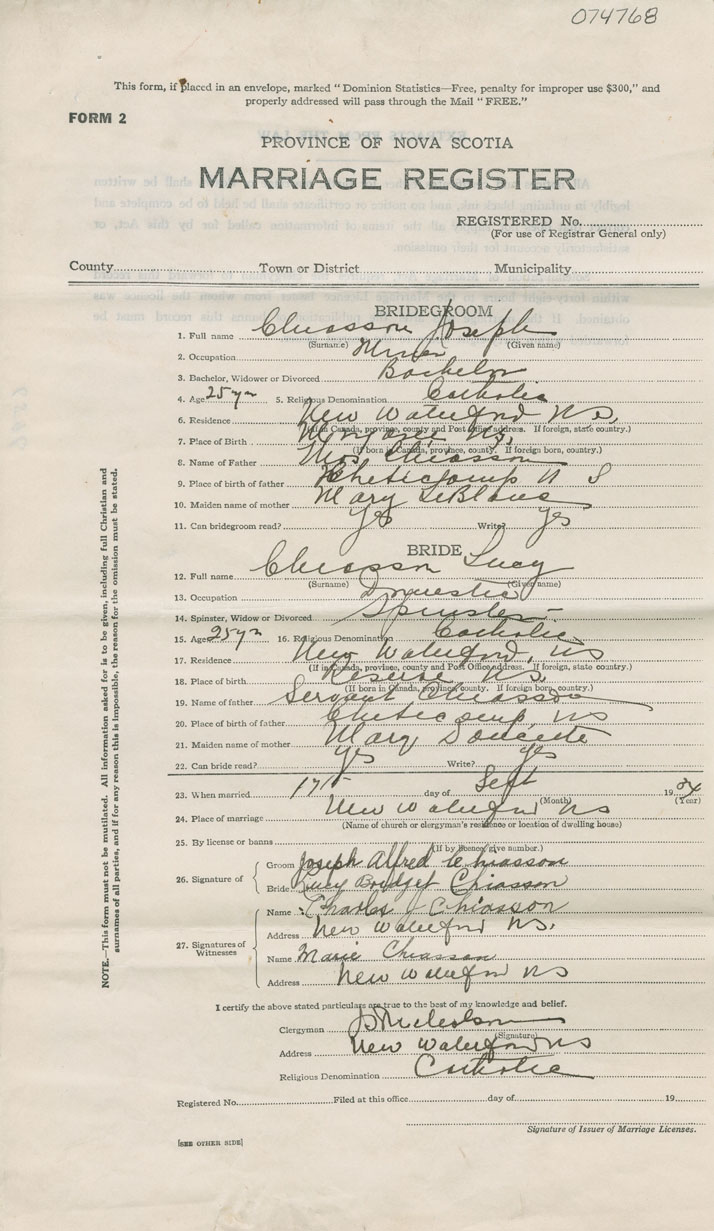 074768
This form, if placed in an envelope, marked "Dominion Statistics—Free, penalty for improper use $300," and
properly addressed will pass through the Mail "FREE."
FORM 2
PROVINCE OF NOVA SCOTIA
MARRIAGE REGISTER
REGISTERED No.
(For use of Registrar General only)
County Town or District Municipality
BRIDEGROOM
1. Full name Chiasson Joseph
(Surname) (Given name)
2. Occupation Miner
3. Bachelor, Widower or Divorced Bachelor
4. Age 25 yrs 5. Religious Denomination Catholic
6. Residence New Waterford N S,
(If in Canada, province, county and Post Office address. If foreign, state country.)
7. Place of Birth Margaree NS,
(If born in Canada, province, county. If foreign born, country.)
8. Name of Father Chiasson
9. Place of birth of father Cheticamp N S
10. Maiden name of mother Mary LeBlanc
11. Can bridegroom read? yes Write? yes
BRIDE
12. Full name Chiasson Lucy
(Surname) (Given name)
13. Occupation Domestic
14. Spinster, Widow or Divorced Spinster
15. Age 25 yrs 16. Religious Denomination Catholic
17. Residence New Waterford, NS
(If in Canada, province, county and Post Office address. If foreign, state country.)
18. Place of birth Reserve NS,
(If born in Canada, province, county. If foreign born, country.)
19. Name of father Servant Chiasson
20. Place of birth of father Cheticamp, NS
21. Maiden name of mother Mary Doucette
22. Can bride read? yes Write? yes
23. When married 17th day of Sept 1934
(Month) (Year)
24. Place of marriage New Waterford NS
(Name of church or clergyman's residence or location of dwelling house)
25. By license or banns
(If by licence, give number.)
26. Signature of Groom Joseph Alfred Chiasson
Bride Lucy Bridget Chiasson
27. Signatures of Witnesses Name Charles J Chiasson
Address New Waterford NS.
Name Marie Chiasson
Address New Waterford NS
I certify the above stated particulars are true to the best of my knowledge and belief.
Clergyman
(Signature)
Address New Waterford NS
Religious Denomination Catholic
Registered No. Filed at this office day of 19
Signature of Issuer of Marriage Licenses.
[SEE OTHER SIDE]
NOTE.—This form must not be mutilated. All information asked for is to be given, including full Christian and
surnames of all parties, and if for any reason this is impossible, the reason for the omission must be stated.